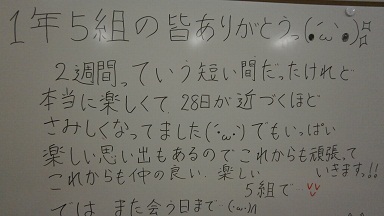 1年5組の皆ありがとうっ(●´ω`●)
2週間っていう短い間だったけれど
本当に楽しくて、28日が近づくほど
さみしくなってました(´・ω・`)でもいっぱい
楽しい思い出もあるのでこれからも頑張って
いきますっ!!
これからも仲の良い、楽しい
5組で
では、また会う日まで…(・ω・)ノ